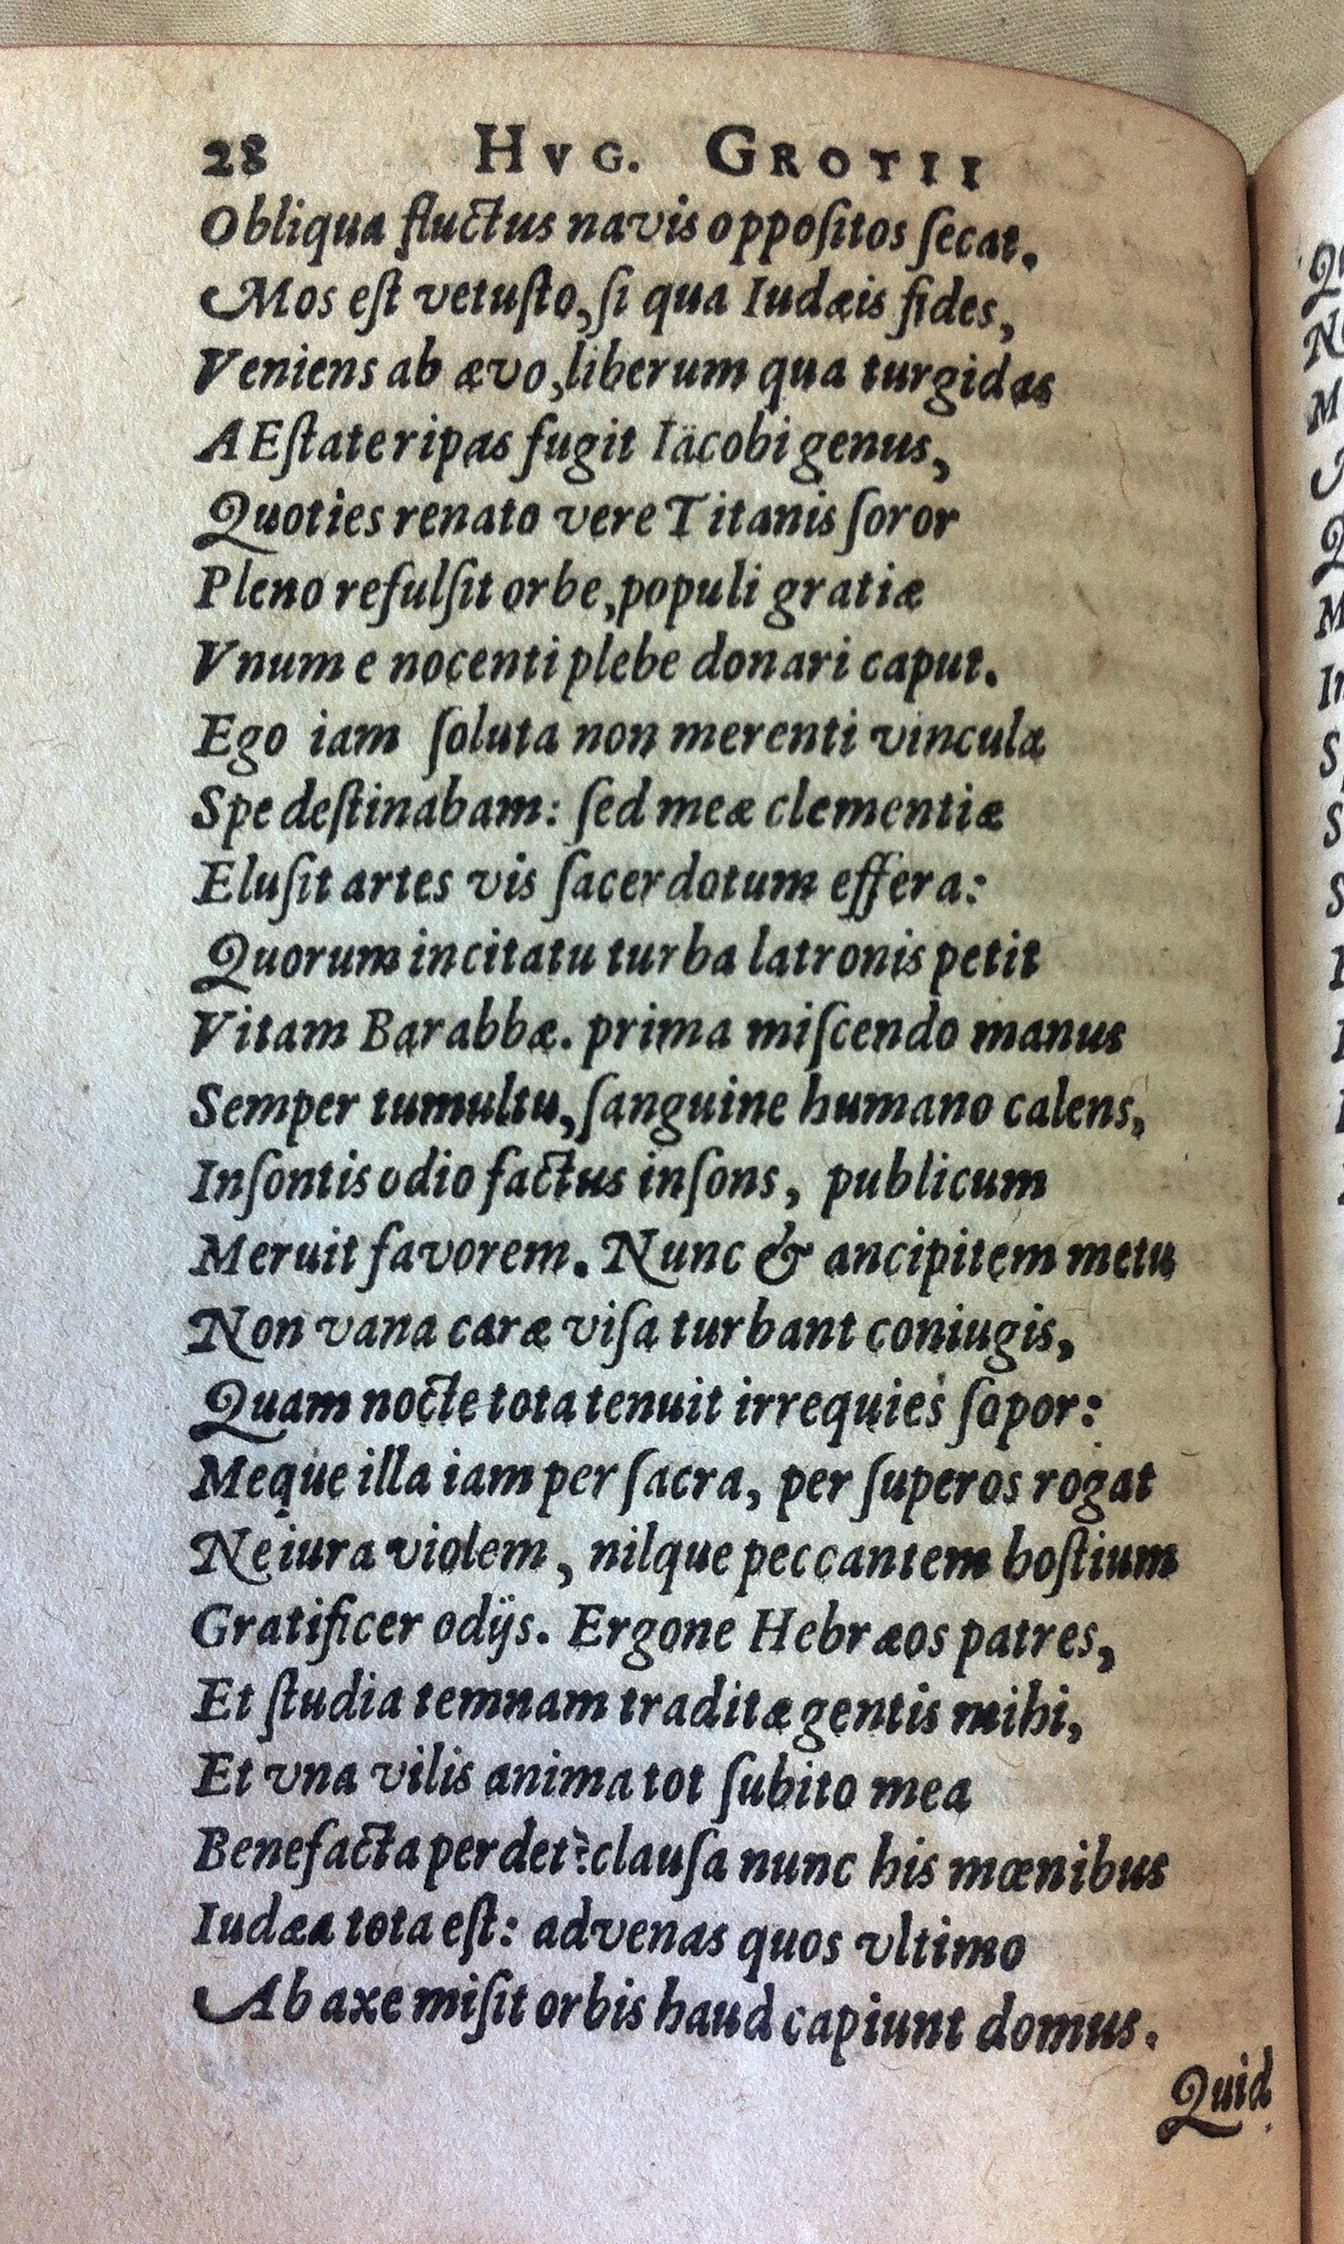 28 HVG. GROTII
Obliqua fluctus navis oppoſitos ſecat.
Mos eſt vetuſto, ſi qua Iudæis fides,
Veniens ab ævo, liberum qua turgidas
AEſtate ripas fugit Iäcobi genus,
Quoties renato vere Titanis ſoror
Pleno refulſit orbe, populi gratiæ
Vnum e nocenti plebe donari caput.
Ego iam ſoluta non merenti vincula
Spe deſtinabam: ſed meæ clementiæ
Eluſit artes vis ſacerdotum effera:
Quorum incitatu turba latronis petit
Vitam Barabbæ. prima miſcendo manus
Semper tumultu, ſanguine humano calens,
Inſontis odio factus inſons, publicum
Meruit favorem. Nunc & ancipitem metu
Non vana caræ viſa turbant coniugis,
Quam nocte tota tenuit irrequies ſopor:
Meque illa iam per ſacra, per ſuperos rogat
Ne iura violem, nilque peccantem hoſtium
Gratificer odijs. Ergone Hebræos patres,
Et ſtudia temnam traditæ gentis mihi,
Et vna vilis anima tot ſubito mea
Benefacta perdet? clauſa nunc his mœnibus
Iudæa tota eſt: advenas quos vltimo
Ab axe miſit orbis haud capiunt domus.
Quid